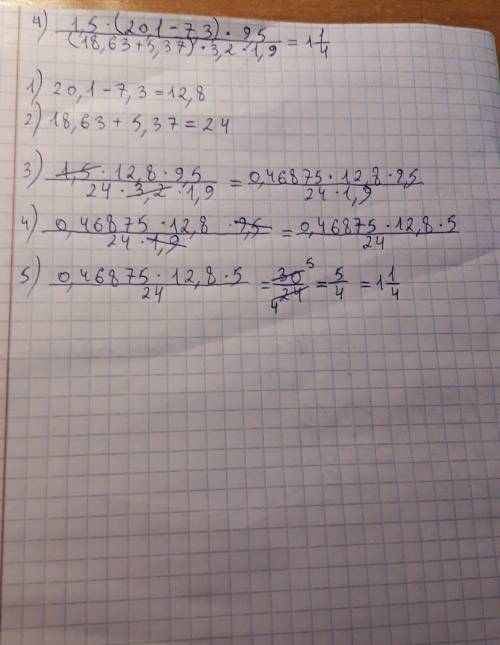 4) 1,5 · (20,1 - 7,3) · 9,5 / (18,63 + 5,37) · 3,2 · 1,9 = 1 1/4
1) 20,1 - 7,3 = 12,8
2) 18,63 + 5,37 = 24
3) 1,5 · 12,8 · 9,5 / 24 · 3,2 · 1,9 = 0,46875 · 12,8 · 9,5 / 24 · 1,9
4) 0,46875 · 12,8 · 9,5 / 24 · 1,9 = 0,46875 · 12,8 · 5 / 24
5) 0,46875 · 12,8 · 5 / 24 = 30 5 / 4 24 = 5/4 = 1 1/4